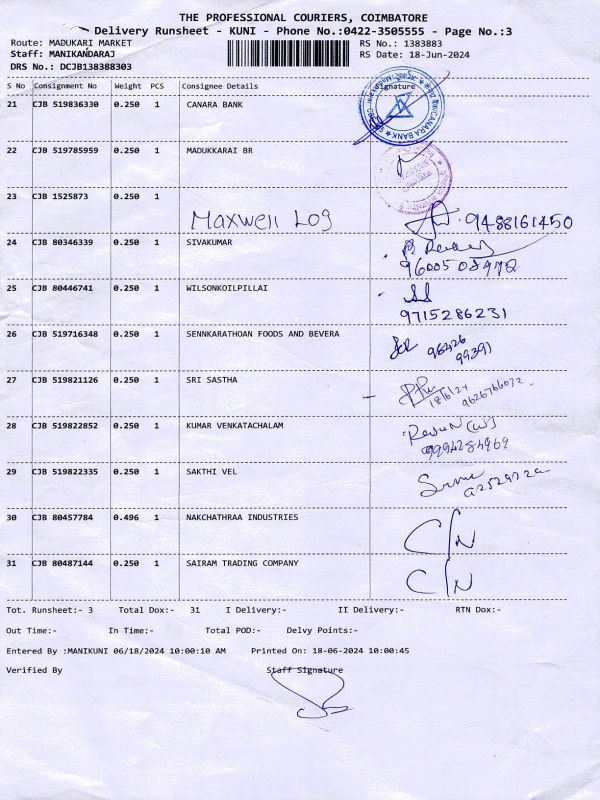 THE PROFESSIONAL COURIERS, COIMBATORE
Delivery Runsheet - KUNI - Phone No.:0422-3505555 - Page No.:3
Route: MADUKARI MARKET RS No.: 1383883
Staff: MANIKANDARAJ RS Date: 18-Jun-2024
DRS No.: DCJB138388303
S No Consignment No Weight PCS Consignee Details Signature
21 CJB 519836330 0.250 1 CANARA BANK
CANARA BANK
22 CJB 519785959 0.250 1 MADUKKARAI BR
23 CJB 1525873 0.250 1
Maxwell Log 9488161450
24 CJB 80346339 0.250 1 SIVAKUMAR
9600508972
25 CJB 80446741 0.250 1 WILSONKOILPILLAI
9715286231
26 CJB 519716348 0.250 1 SENNKARATHOAN FOODS AND BEVERA
98426
99391
27 CJB 519821126 0.250 1 SRI SASTHA
18/6/24 9626766032
28 CJB 519822852 0.250 1 KUMAR VENKATACHALAM
9994284969
29 CJB 519822335 0.250 1 SAKTHI VEL
30 CJB 80457784 0.496 1 NAKCHATHRAA INDUSTRIES
C/N
31 CJB 80487144 0.250 1 SAIRAM TRADING COMPANY
C/N
Tot. Runsheet:- 3 Total Dox:- 31 I Delivery:- II Delivery:- RTN Dox:-
Out Time:- In Time:- Total POD:- Delvy Points:-
Entered By :MANIKUNI 06/18/2024 10:00:10 AM Printed On: 18-06-2024 10:00:45
Verified By Staff Signature